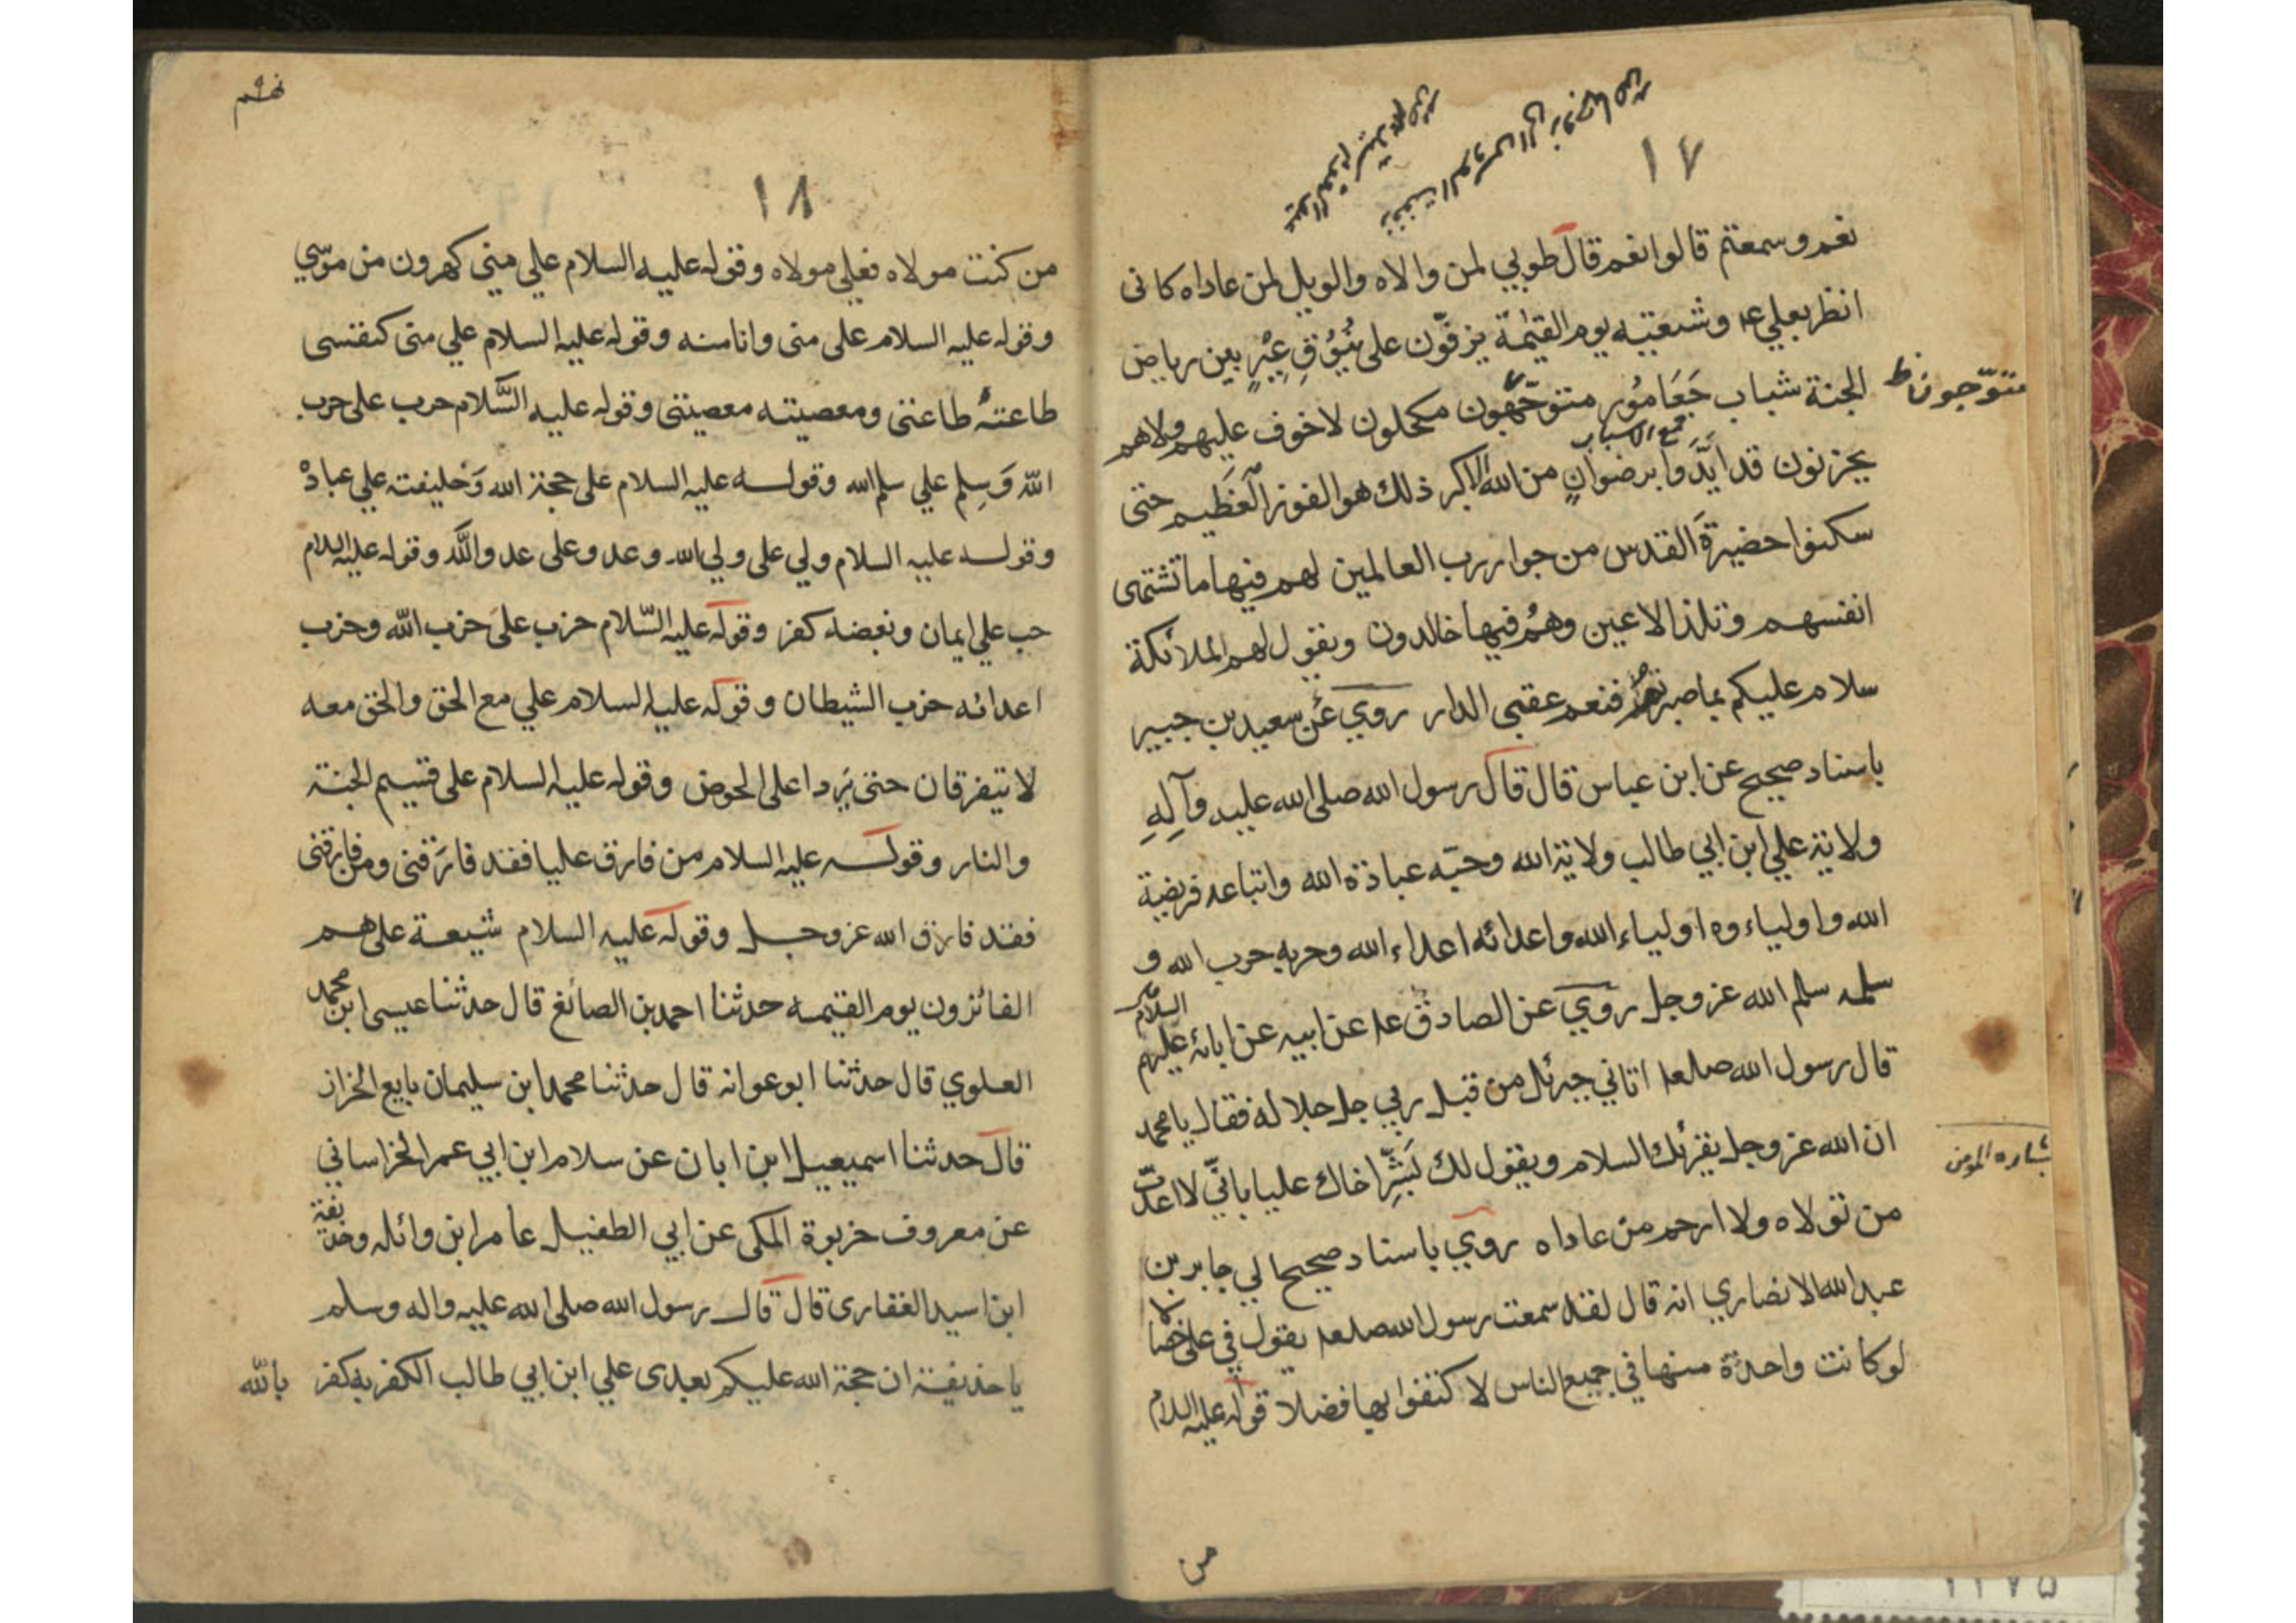 ١٧
نعم وسمعتم قالوا نعم قال طوبي لمن والاه والويل لمن عاداه كانى
انظر بعلي ع وشيعتيه يوم القيٰمة يزفّون على نُوُقِ غُبْرٍ بين رياض
الجنة شباب جَعَامُور متوجّهون مكحلون لا خوف عليهم ولا هم
متوّجون ظ
جمع الاسباب
يحزنون قد اَيَّدَوا برضوانٍ من الله الاكبر ذلك هو الفوز الْعَظيم حتى
سكنوا حضيرَةَ القدس من جوار رب العالمين لهم فيها ما تشتهى
انفسهم وتلذ الاعين وهُم فيها خالدون ويقول لهم الملائكة
سلام عليكم بما صبرتم فنعم عقبي الدار روي عَن سعيد بن جبير
باسناد صحيح عن ابن عباس قال قال رسول الله صلى الله عليه وَآلِهِ
ولاية علي ابن ابي طالب ولاية الله وحبّه عبادة الله واتباعه فريضة
الله واولياءوه اولياء الله واعدائه اعداء الله وحربه حرب الله و
سلمه سلم الله عز وجل روي عن الصادق ع عن ابيه عن ابائه عليهم السلام
قال رسول الله صلعم اتاني جبرئل من قبل ربي جل جلاله فقال يا محمد
ان الله عز وجل يقرئك السلام ويقول لك بَشِّر اخاك عليا بانّي لا اعذّب
بشاره المومن
من تولاه ولا ارحم من عاداه روي باسناد صحيح الي جابر بن
عبد الله الانصاري انه قال لقد سمعت رسول الله صلعم يقول في علي خصالا
لو كانت واحدة منها في جميع الناس لاكتفوا بها فضلا قوله عليه السلام
من
١٨
من كنت مولاه فعلي مولاه وقوله عليه السلام علي مني كهرون من موسي
وقوله عليه السلام على منى وانا منه وقوله عليه السلام علي منى كنفسى
طاعتهُ طاعتى ومعصيته معصيتى وقوله عليه السَّلام حرب على حرب
اللّه وَسِلم علي سلم الله وقوله عليه السلام على حجة الله وَخليفته علي عباده
وقوله عليه السلام ولي على ولي الله وعدو على عدو اللَّه وقوله عليه السلام
حب علي ايمان وبغضه كفر وقوله عليه السّلام حزب على حزب اللّه وحزب
اعدائه حزب الشيطان وقوله عليه السلام علي مع الحق والحق معه
لا تيفرقان حتى يَردا على الحوض وقوله عليه السلام على قسيم الجنة
والنار وقوله عليه السلام من فارق عليا فقد فارَقنى ومن فارقنى
فقد فارق الله عز وجل وقوله عليه السلام شيعة على هم
الفائزون يوم القيمه حدثنا احمد بن الصائغ قال حدثنا عيسى ابن محمد
العلوي قال حدثنا ابو عوانه قال حدثنا محمد ابن سليمان بايع الخزاز
قال حدثنا اسميعيل ابن ابان عن سلام ابن ابي عمر الخراساني
عن معروف خربوة المكى عن ابي الطفيل عامر ابن وائله وحذيفة
ابن اسيد الغفارى قال قال رسول الله صلى الله عليه واله وسلم
يا حذيفة ان حجة الله عليكم بعدى علي ابن ابي طالب الكفر به كفر
بالله